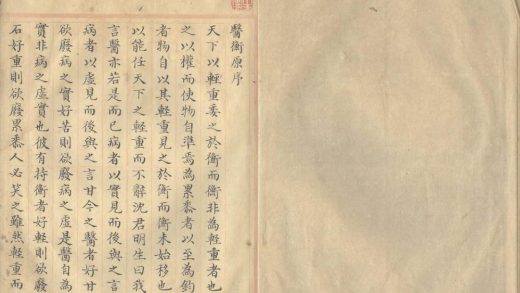 醫衡原序
天下以輕重委之於衡而衡非為輕重者也
之以權而使物自準焉為累黍者以至為鈞
者物自以其輕重見之於衡而衡未始移也
以能任天下之輕重而不辭沈君明生曰我
言醫亦若是而已病者以實見而後與之言
病者以虛見而後與之言甘今之醫者好甘
欲廢病之實好苦則欲廢病之虛是醫自為
實非病之虛實也彼有持衡者好輕則欲廢
石好重則欲廢累黍人必笑之雖然輕重而